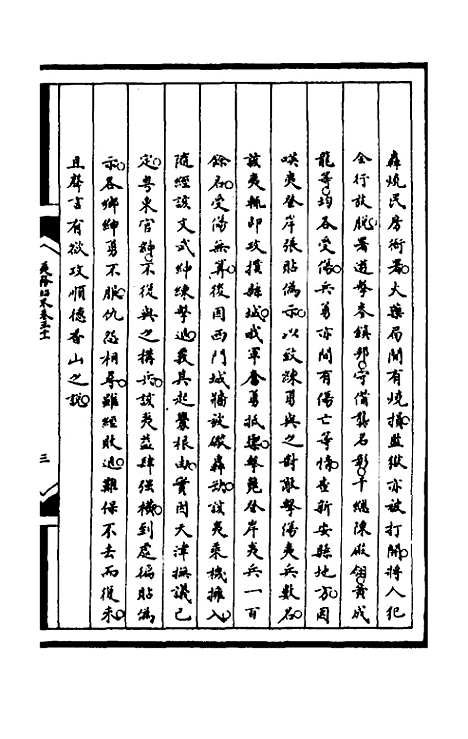 轟燒民房衙署火藥局間有燒燬監獄亦被打開將人犯
全行放脫署遊擊麥鎮邦守備龔名彰千總陳殿翎黃成
龍等均各受傷兵勇亦間有傷亡等情查新安縣地方因
嘆夷登岸張貼偽示以致踈勇與之對敵擊傷夷兵數名
該夷輒即攻撲縣城我軍奮勇抵禦擊斃登岸夷兵一百
餘名受傷無算後因西門城牆被礟轟動該夷乘機擁入
隨經該文武紳練擊退義其起釁根由實因天津撫議已
定粵東官紳不從與之構兵該夷益肆强橫到處徧貼偽
示各鄉紳勇不服仇忿相尋雖經敗退難保不去而復來
且聲言有欲攻順德香山之說
夷務始末卷三十
三